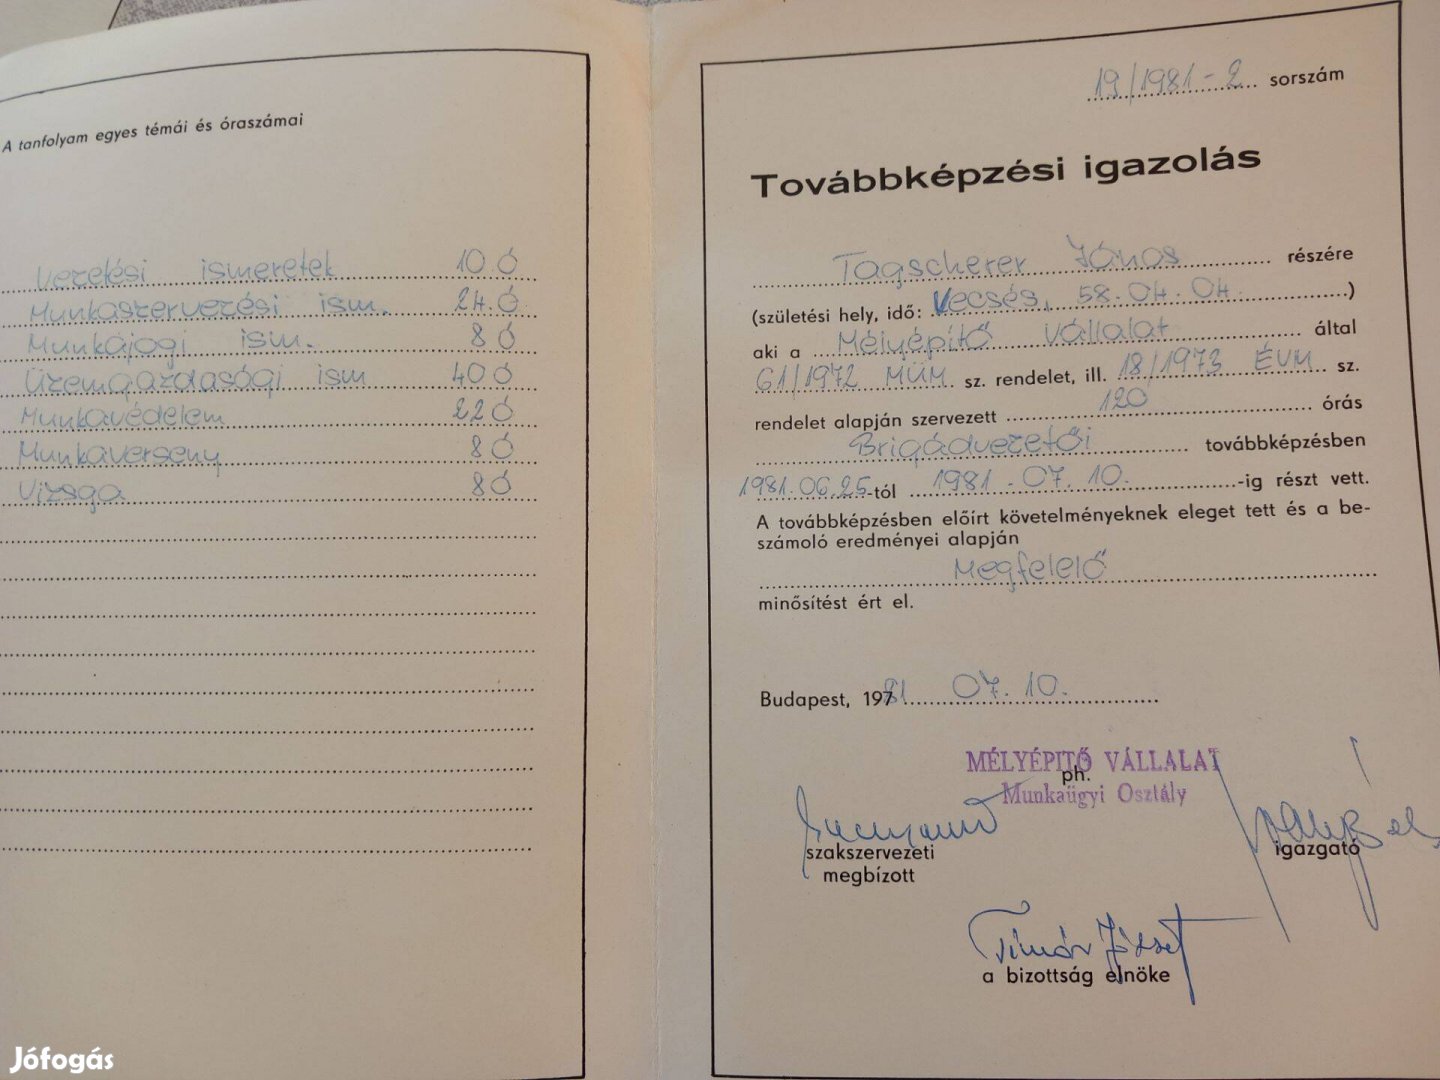 A tanfolyam egyes témái és óraszámai
Vezetési ismeretek 10 Ó
Munkaszervezési ism. 24 Ó
Munkajogi ism. 8 Ó
Üzemgazdasági ism 40 Ó
Munkavédelem 22 Ó
Munkaverseny 8 Ó
Vizsga 8 Ó
19/1981-2 sorszám
Továbbképzési igazolás
Tagscherer János részére
(születési hely, idő: Vecsés, 58.04.04 )
aki a Mélyépítő Vállalat által
61/1972 MÜM sz. rendelet, ill. 18/1973 ÉVM sz.
rendelet alapján szervezett 120 órás
Brigádvezetői továbbképzésben
1981.06.25-tól 1981.07.10.-ig részt vett.
A továbbképzésben előírt követelményeknek eleget tett és a be-
számoló eredményei alapján
Megfelelő
minősítést ért el.
Budapest, 1981 07.10.
MÉLYÉPITŐ VÁLLALAT
ph.
Munkaügyi Osztály
szakszervezeti
megbízott
igazgató
Tímár József
a bizottság elnöke
Jófogás